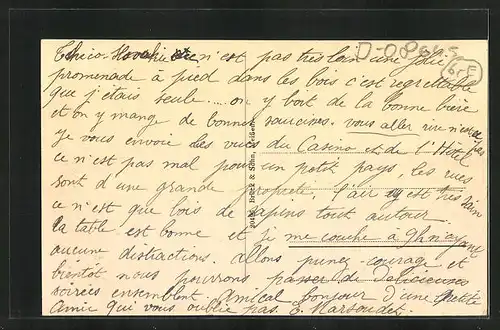 Tchéco-Slovaquie n'est pas très loin une jolie
promenade à pied dans les bois c'est regrettable
que j'étais seule..... on y boit de la bonne bière
et on y mange de bonnes saucisses. vous aller rire n'est ce pas
Je vous envoie les vues du Casino et de l'Hôtel
ce n'est pas mal pour un petit pays, les rues
sont d'une grande propreté, l'air y est très sain
ce n'est que bois de sapins tout autour
la table est bonne et je me couche à 9h n'ayant
aucune distractions. allons prenez courage et
bientôt nous pourrons passer de délicieuses
soirées ensemblent. amical bonjour d'une petite
amie qui vous oublie pas
Brück & Sohn, Meißen